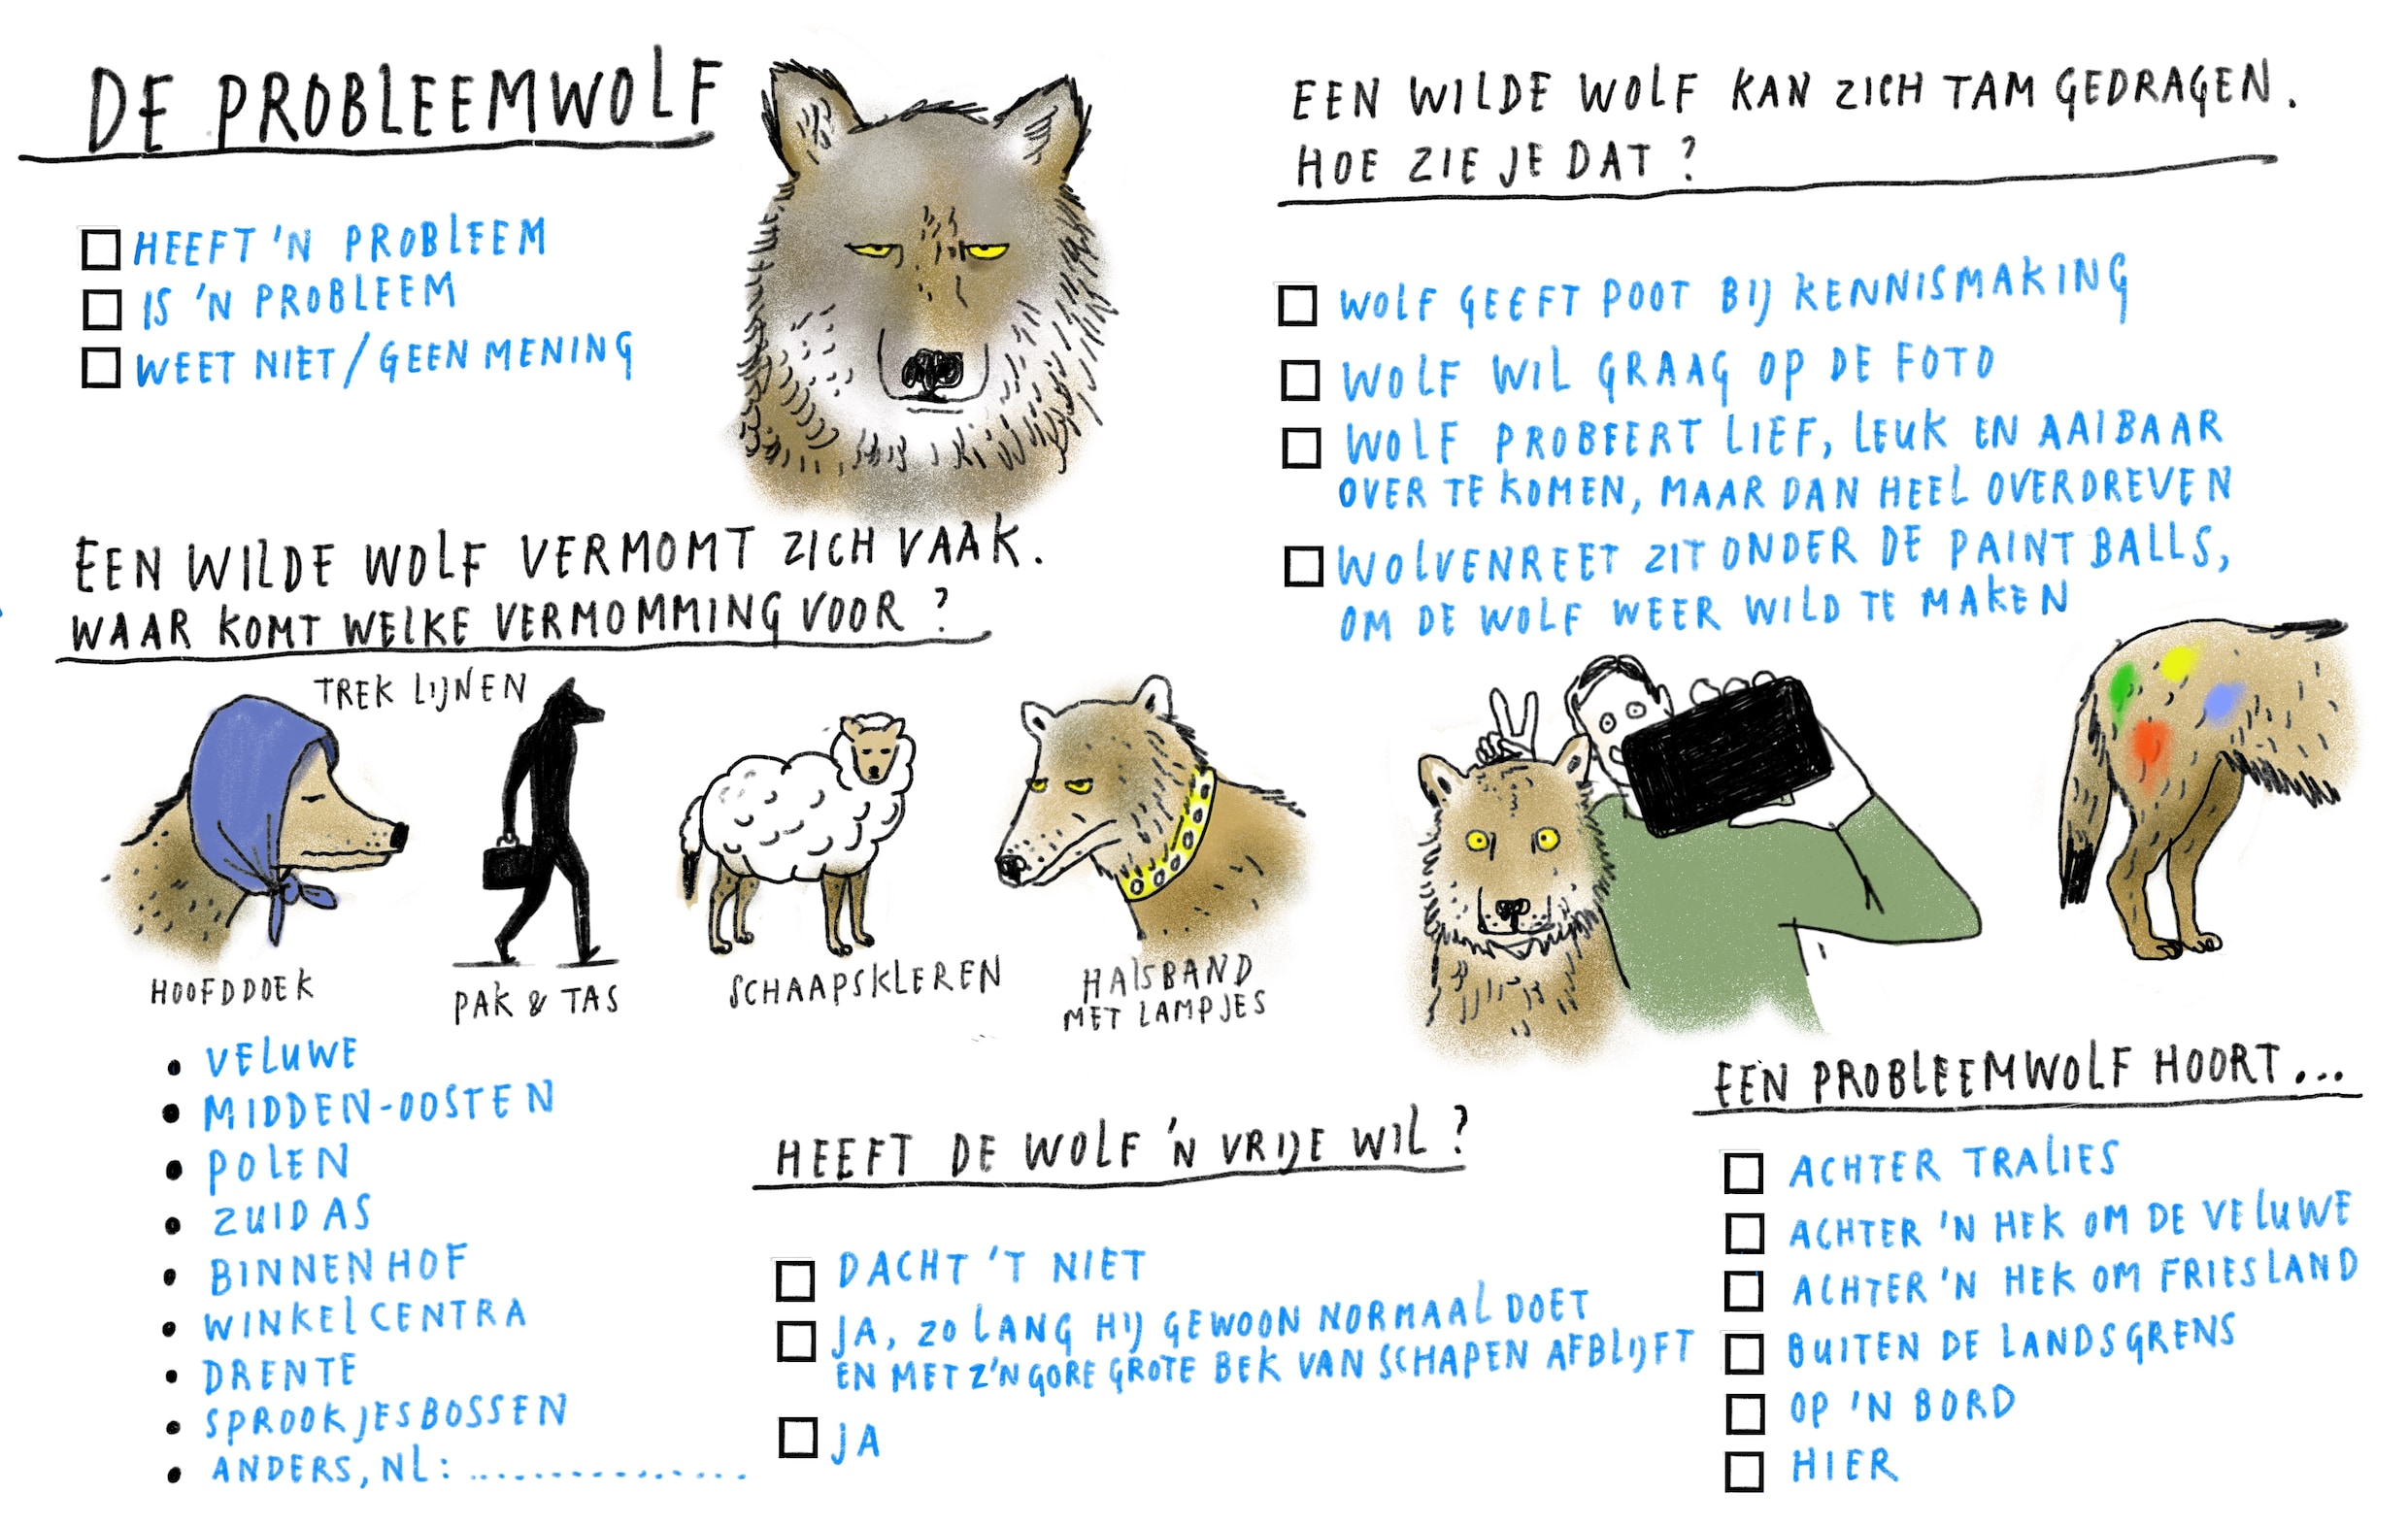 DE PROBLEEMWOLF
HEEFT 'N PROBLEEM
IS 'N PROBLEEM
WEET NIET/GEEN MENING
EEN WILDE WOLF VERMOMT ZICH VAAK.
WAAR KOMT WELKE VERMOMMING VOOR?
TREK LIJNEN
HOOFDDOEK
PAK & TAS
SCHAAPSKLEREN
HALSBAND
MET LAMPJES
VELUWE
MIDDEN-OOSTEN
POLEN
ZUIDAS
BINNENHOF
WINKELCENTRA
DRENTE
SPROOKJESBOSSEN
ANDERS, NL: ................
EEN WILDE WOLF KAN ZICH TAM GEDRAGEN.
HOE ZIE JE DAT?
WOLF GEEFT POOT BIJ KENNISMAKING
WOLF WIL GRAAG OP DE FOTO
WOLF PROBEERT LIEF, LEUK EN AAIBAAR
OVER TE KOMEN, MAAR DAN HEEL OVERDREVEN
WOLVENREET ZIT ONDER DE PAINTBALLS,
OM DE WOLF WEER WILD TE MAKEN
HEEFT DE WOLF 'N VRIJE WIL?
DACHT 'T NIET
JA, ZO LANG HIJ GEWOON NORMAAL DOET
EN MET Z'N GORE GROTE BEK VAN SCHAPEN AFBLIJFT
JA
EEN PROBLEEMWOLF HOORT...
ACHTER TRALIES
ACHTER 'N HEK OM DE VELUWE
ACHTER 'N HEK OM FRIESLAND
BUITEN DE LANDSGRENS
OP 'N BORD
HIER